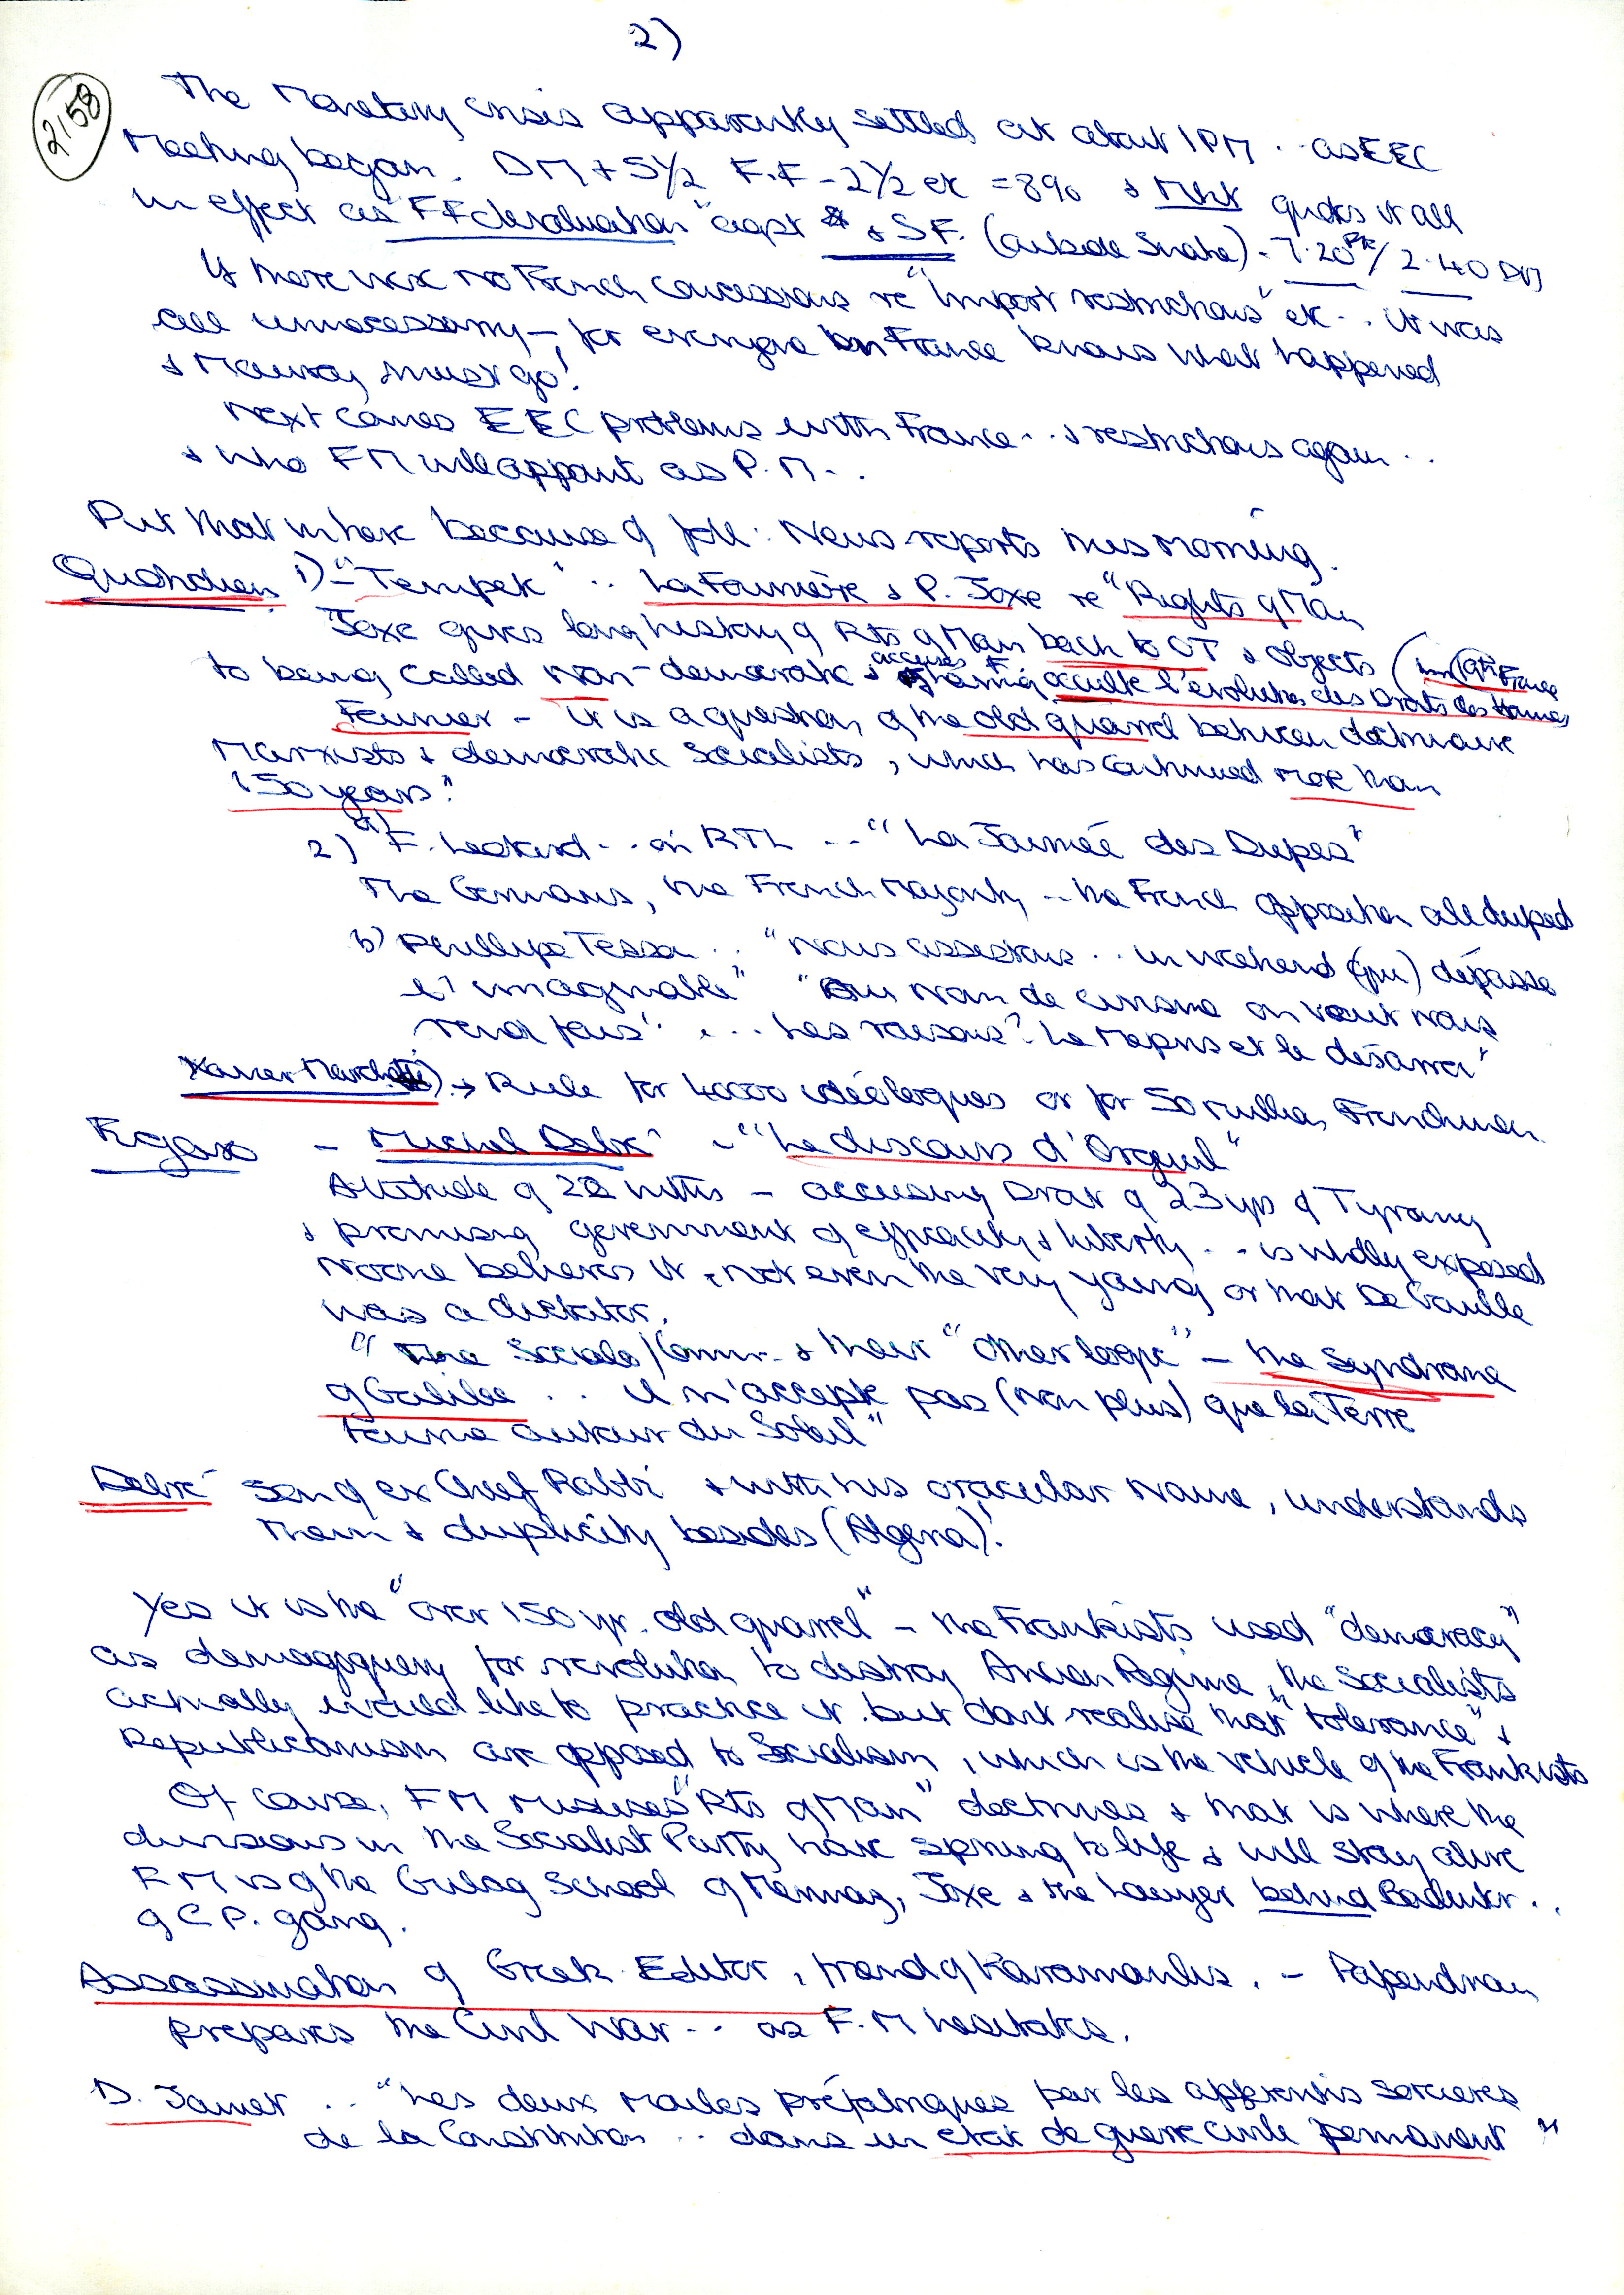 2)
2158
The Monetary crisis apparently settled at about 1PM .. as EEC
Meeting began. DM + 5½ F.F - 2½ etc = 8% & Mkt quotes it all
in effect as "FF devaluation" agst $ & SF. (outside Snake) - 7.20 / 2.40 DM
If there were no French concessions re "import restrictions" etc .. it was
all unnecessary - for everyone in France knows what happened
& Mauroy must go!
Next comes EEC problems with France .. & restrictions again ..
& who FM will appoint as P.M. ..
Put that in here because of foll: News reports this morning.
Quotidien 1) - "Tempete" .. La Fournière & P. Joxe re "Rights of Man
Joxe gives long history of Rts of Man back to OT & objects (
to being called non-democratic & accuses F. of having occulte l'evolution des Droits des Hommes
Fournier - it is a question of the old quarrel between doctrinaire
Marxists & democratic Socialists, which has continued more than
150 years."
2) a) F. Leotard .. on RTL .. "La Journéé des Dupes"
The Germans, the French Majority .. the French opposition all duped
b) Phillipe Tesson .. "Nous assistons .. un weekend (qui) dépasse
l'imaginable" "Au nom de cinisme on veut nous
rend fous" ... Les raisons? Le Mepris et le désarroi"
Xavier Marchetti) → Rule for 40000 idéologues or for 50 million Frenchmen.
Figaro - Michel Debré - "Le discours d'Orgueil"
Attitude of 22 mths - accusing Droit of 23 yrs of Tyranny
& promising government of efficacity & liberty .. is wholly exposed
No one believes it, not even the very young or that De Gaulle
was a dictator.
"The Socialo/Comm. & their "other logic" - the Syndrome
of Galilee .. il n'accepte pas (non plus) que la Terre
tourne autour du Soleil"
Debré son of ex Chief Rabbi & with his oracular name, understands
them & duplicity besides (Algeria)!
Yes it is the "over 150 yr. old quarrel" - the Frankists used "democracy"
as demagoguery for revolution to destroy Ancien Regime, the Socialists
actually would like to practice it. but dont realise that "tolerance" &
Republicanism are opposed to Socialism, which is the vehicle of the Frankists
Of course, FM misuses "Rts of Man" doctrines & that is where the
divisions in the Socialist Party have sprung to life & will stay alive
FM is of the Gulag School of Mermaz, Joxe & the Lawyer behind Badinter ..
of C.P. gang.
Assassination of Greek Editor, friend of Karamanlis. - Papendreau
prepares the Civil War .. as F.M hesitates.
D. Jamet .. "Les deux moules préfabriquees par les apprentis sorcieres
de la Constitution .. dans un etat de guerre civile permanent"